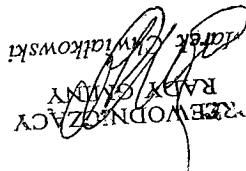 PRZEWODNICZĄCY
RADY GMINY
Marek Chwiałkowski